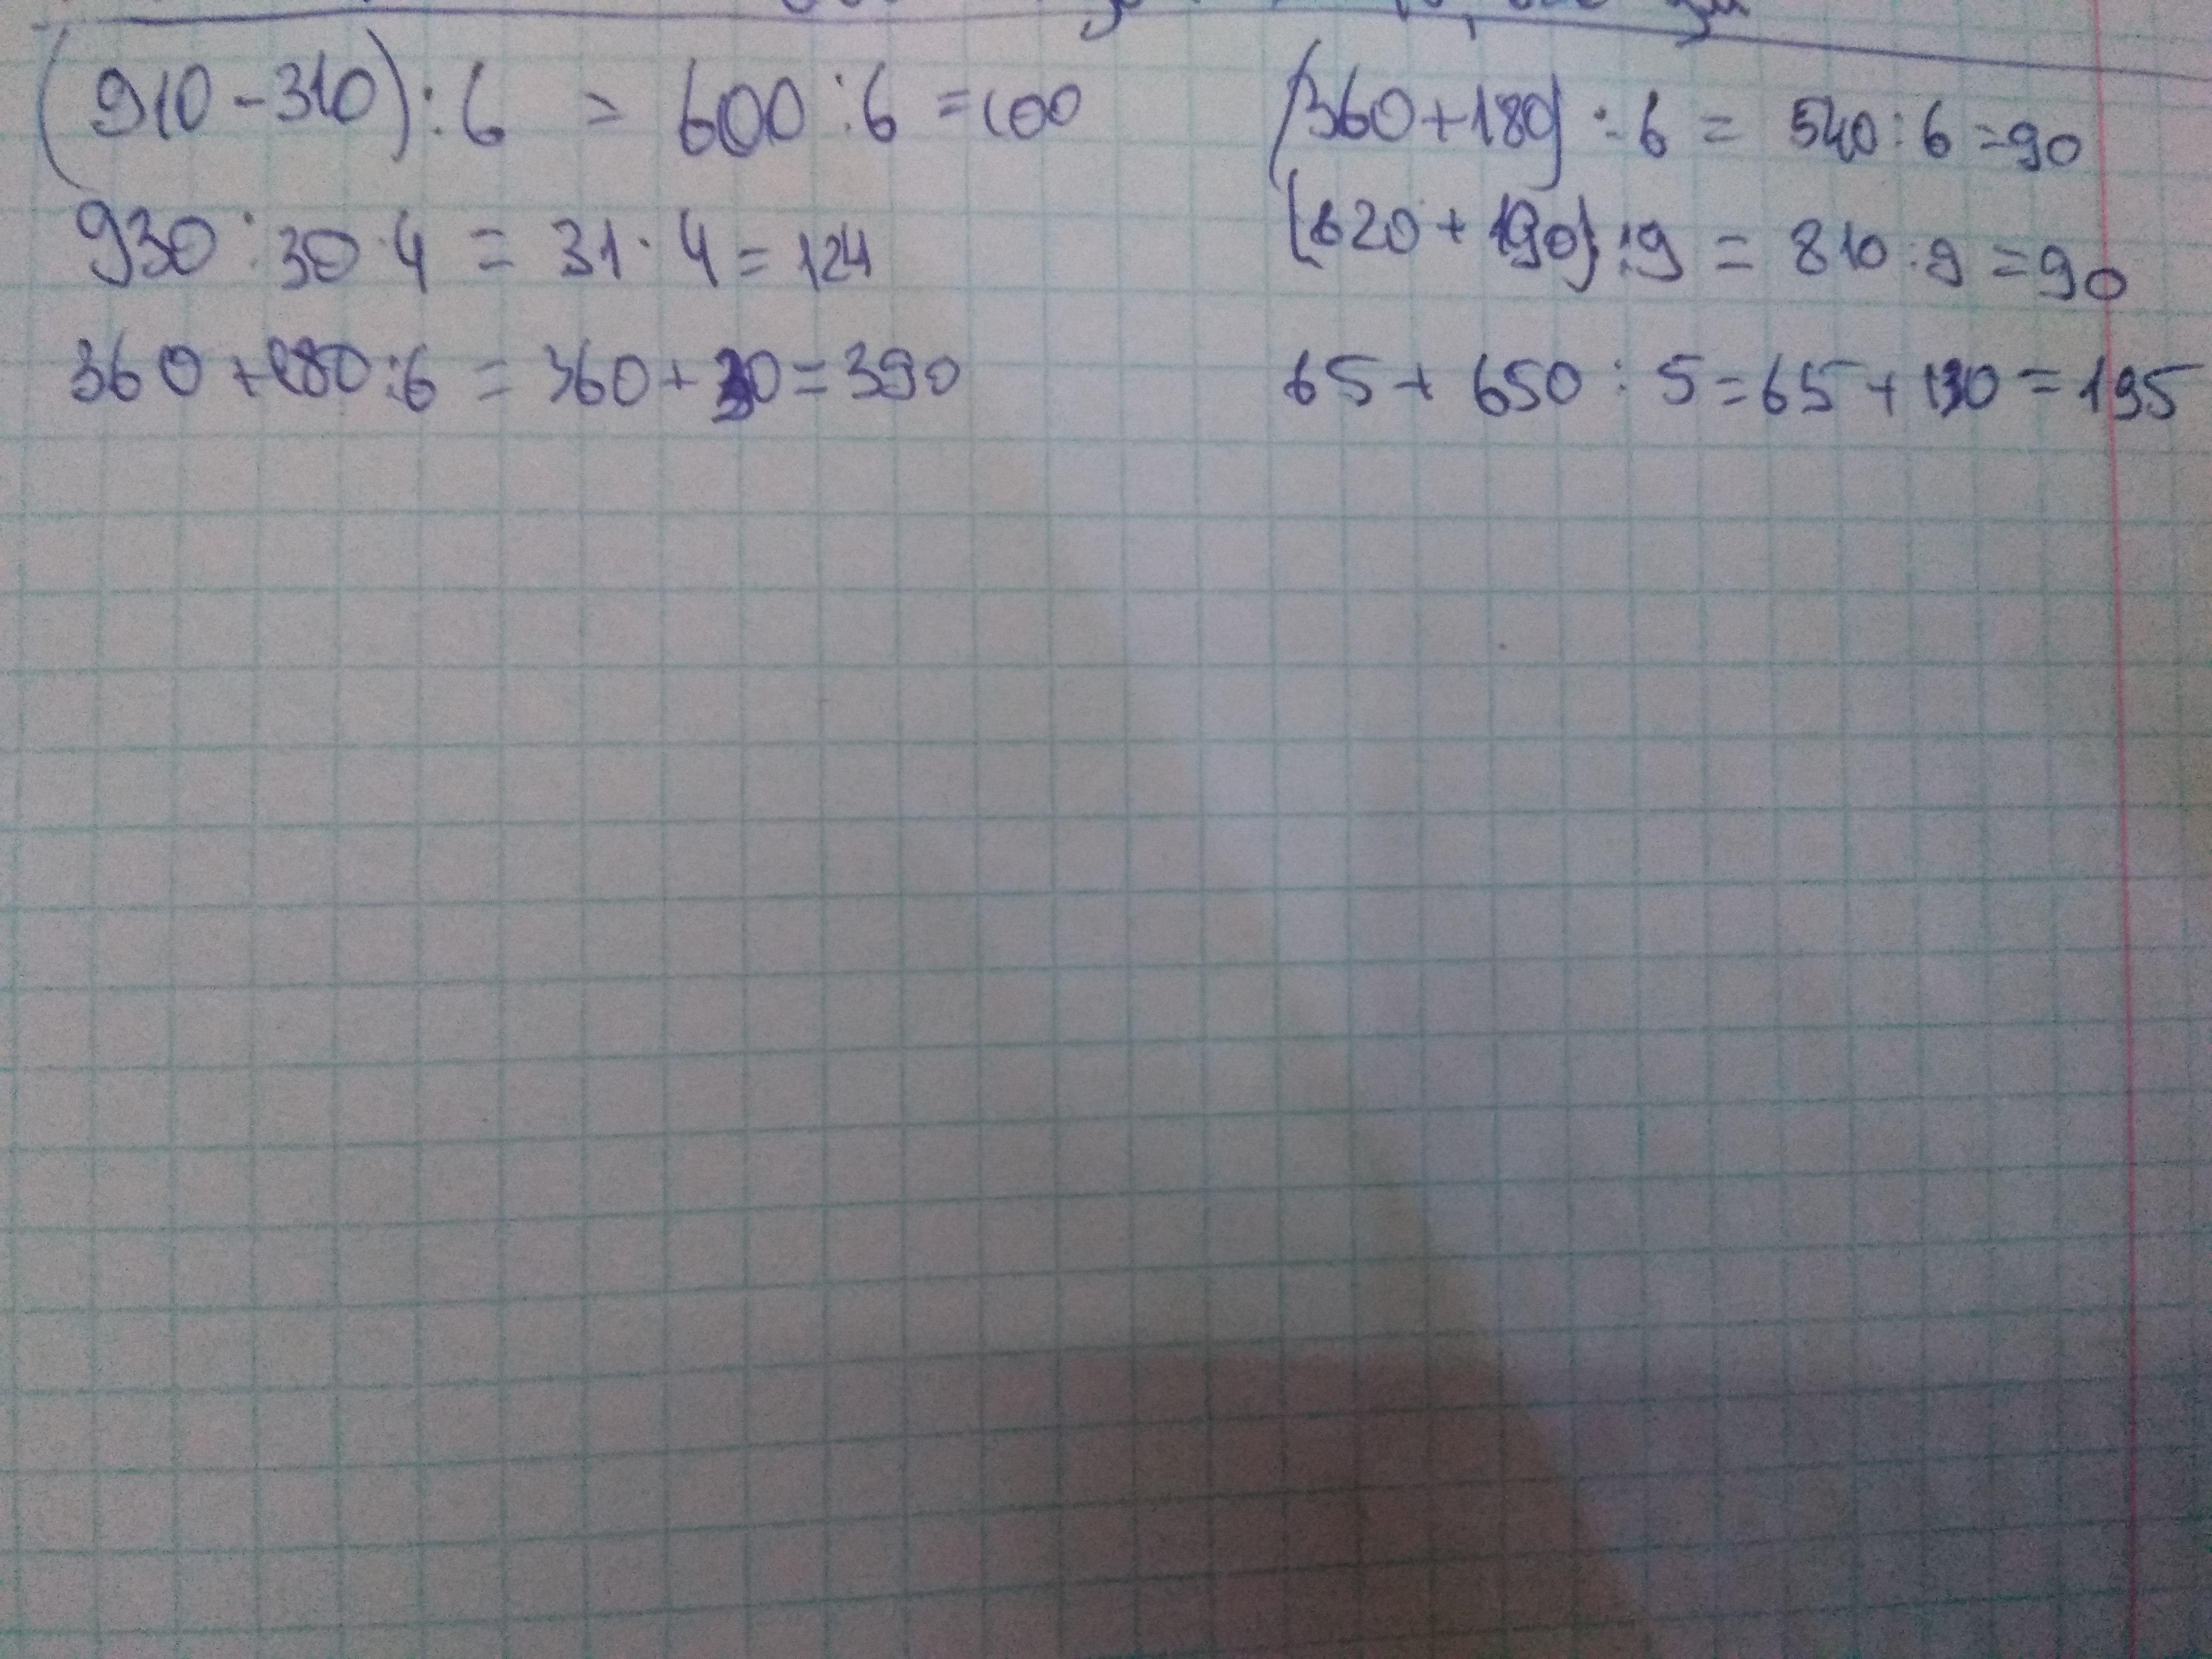 (910-310):6 = 600:6=100
930:30·4 = 31·4=124
360+180:6 = 360+30=390
(360+180):6 = 540:6=90
(620+190):9 = 810:9=90
65+650:5=65+130=195